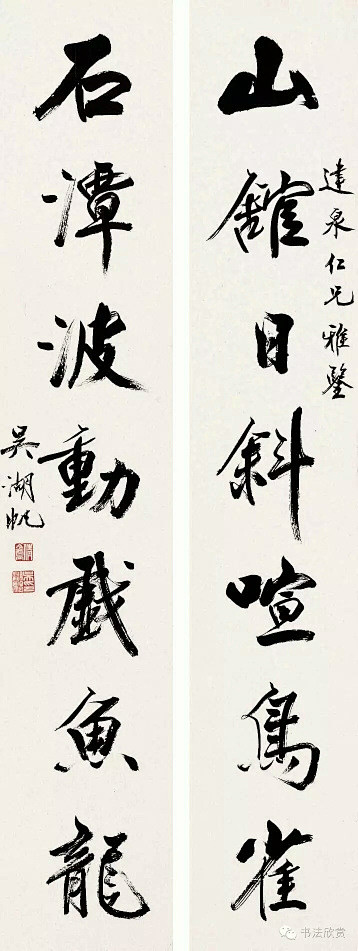 達泉仁兄雅鑒
山館日斜喧鳥雀
石潭波動戲魚龍
吴湖帆
书法欣赏